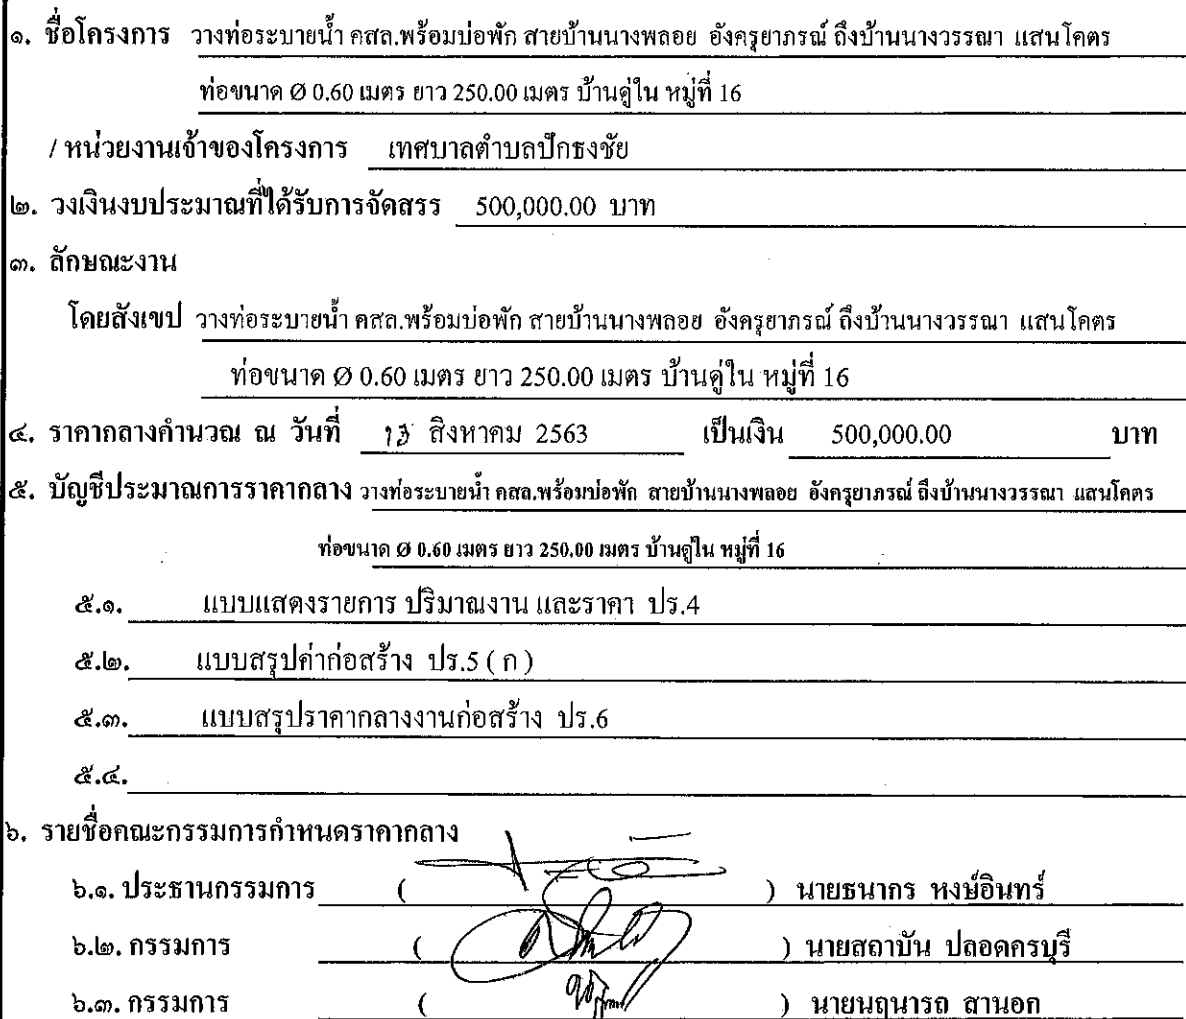 ๑. ชื่อโครงการ วางท่อระบายน้ำ คสล.พร้อมบ่อพัก สายบ้านนางพลอย อังครุยาภรณ์ ถึงบ้านนางวรรณา แสนโคตร
ท่อขนาด Ø 0.60 เมตร ยาว 250.00 เมตร บ้านคู่ใน หมู่ที่ 16
/ หน่วยงานเจ้าของโครงการ เทศบาลตำบลปักธงชัย
๒. วงเงินงบประมาณที่ได้รับการจัดสรร 500,000.00 บาท
๓. ลักษณะงาน
โดยสังเขป วางท่อระบายน้ำ คสล.พร้อมบ่อพัก สายบ้านนางพลอย อังครุยาภรณ์ ถึงบ้านนางวรรณา แสนโคตร
ท่อขนาด Ø 0.60 เมตร ยาว 250.00 เมตร บ้านดู่ใน หมู่ที่ 16
๔. ราคากลางคำนวณ ณ วันที่ 13 สิงหาคม 2563 เป็นเงิน 500,000.00 บาท
๕. บัญชีประมาณการราคากลาง วางท่อระบายน้ำ คสล.พร้อมบ่อพัก สายบ้านนางพลอย อังครุยาภรณ์ ถึงบ้านนางวรรณา แสนโคตร
ท่อขนาด Ø 0.60 เมตร ยาว 250.00 เมตร บ้านดู่ใน หมู่ที่ 16
๕.๑. แบบแสดงรายการ ปริมาณงาน และราคา ปร.4
๕.๒. แบบสรุปค่าก่อสร้าง ปร.5 ( ก )
๕.๓. แบบสรุปราคากลางงานก่อสร้าง ปร.6
๕.๔.
๖. รายชื่อคณะกรรมการกำหนดราคากลาง
๖.๑. ประธานกรรมการ ( ) นายธนากร หงษ์อินทร์
๖.๒. กรรมการ ( ) นายสถาบัน ปลอดครบุรี
๖.๓. กรรมการ ( ) นายนฤนารถ สานอก